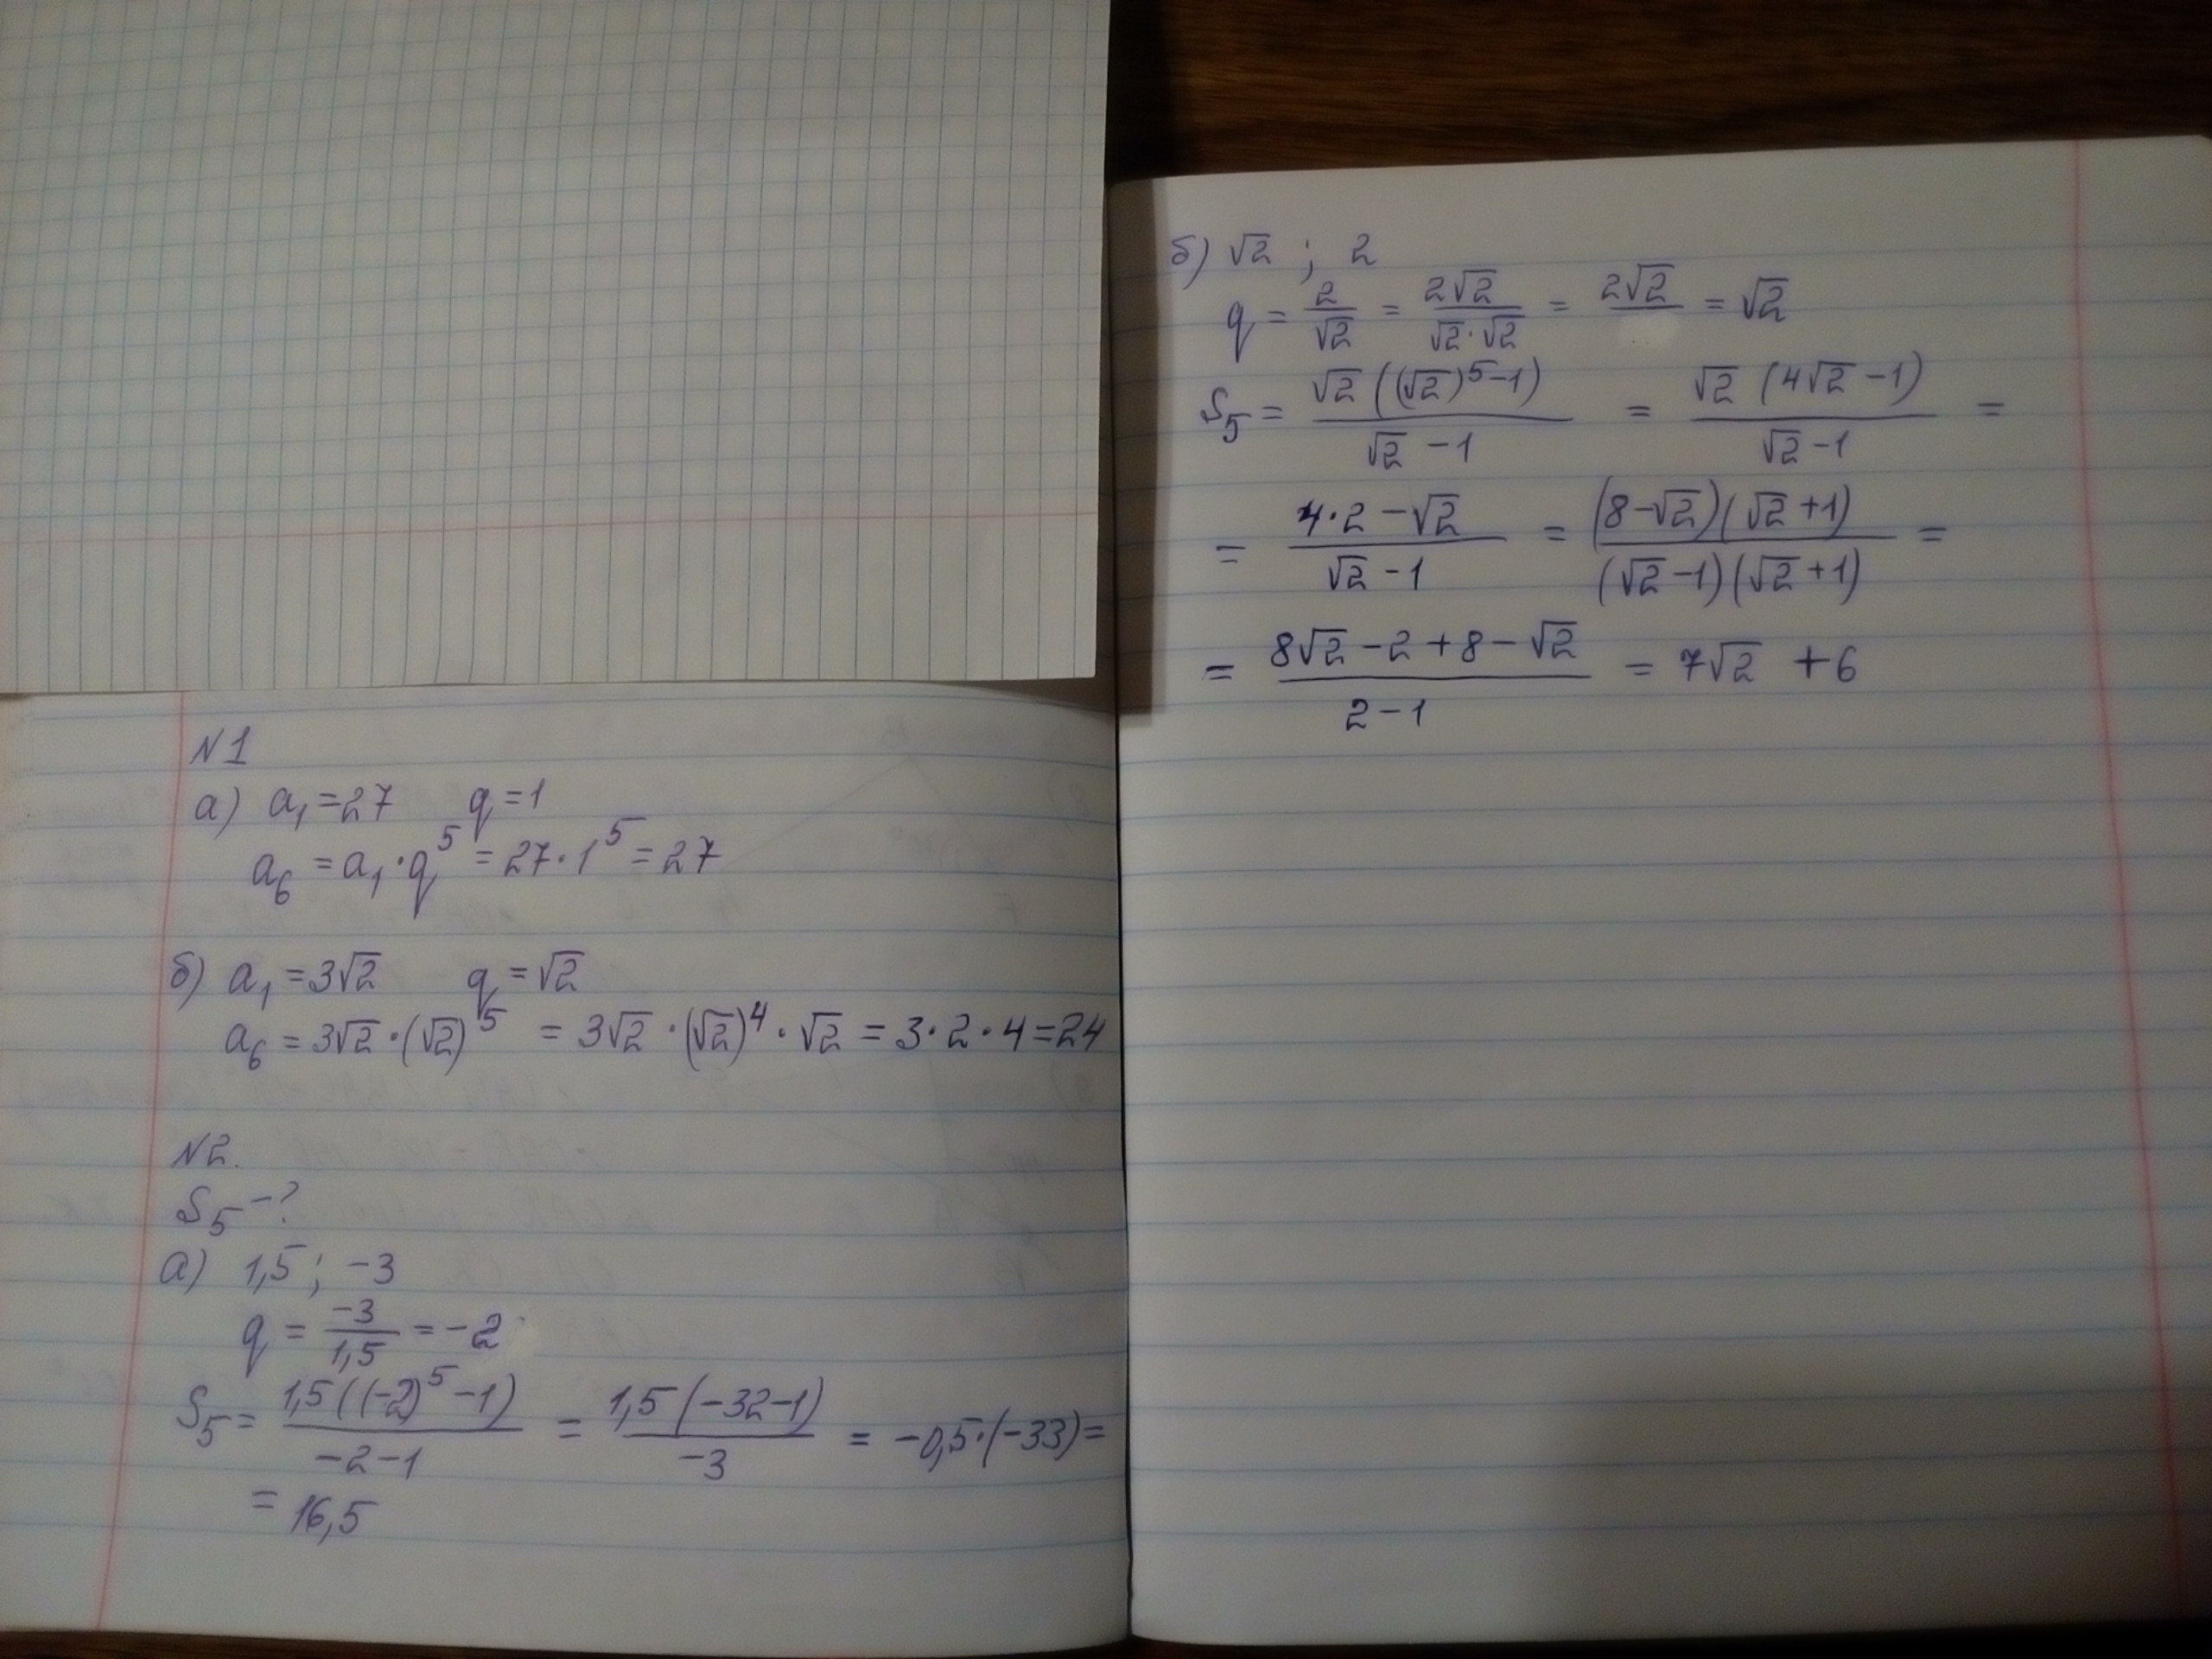 N1
а) a₁ = 27 q = 1
a₆ = a₁ · q⁵ = 27 · 1⁵ = 27
б) a₁ = 3√2 q = √2
a₆ = 3√2 · (√2)⁵ = 3√2 · (√2)⁴ · √2 = 3 · 2 · 4 = 24
N2.
S₅ – ?
а) 1,5 ; -3
q = -3/1,5 = -2
S₅ = 1,5((-2)⁵ - 1)/(-2-1) = 1,5(-32-1)/-3 = -0,5·(-33) =
= 16,5
б) √2 ; 2
q = 2/√2 = 2√2/(√2·√2) = 2√2/ = √2
S₅ = √2((√2)⁵-1)/(√2-1) = √2(4√2-1)/(√2-1) =
= (4·2-√2)/(√2-1) = (8-√2)(√2+1)/((√2-1)(√2+1)) =
= (8√2-2+8-√2)/(2-1) = 7√2 + 6